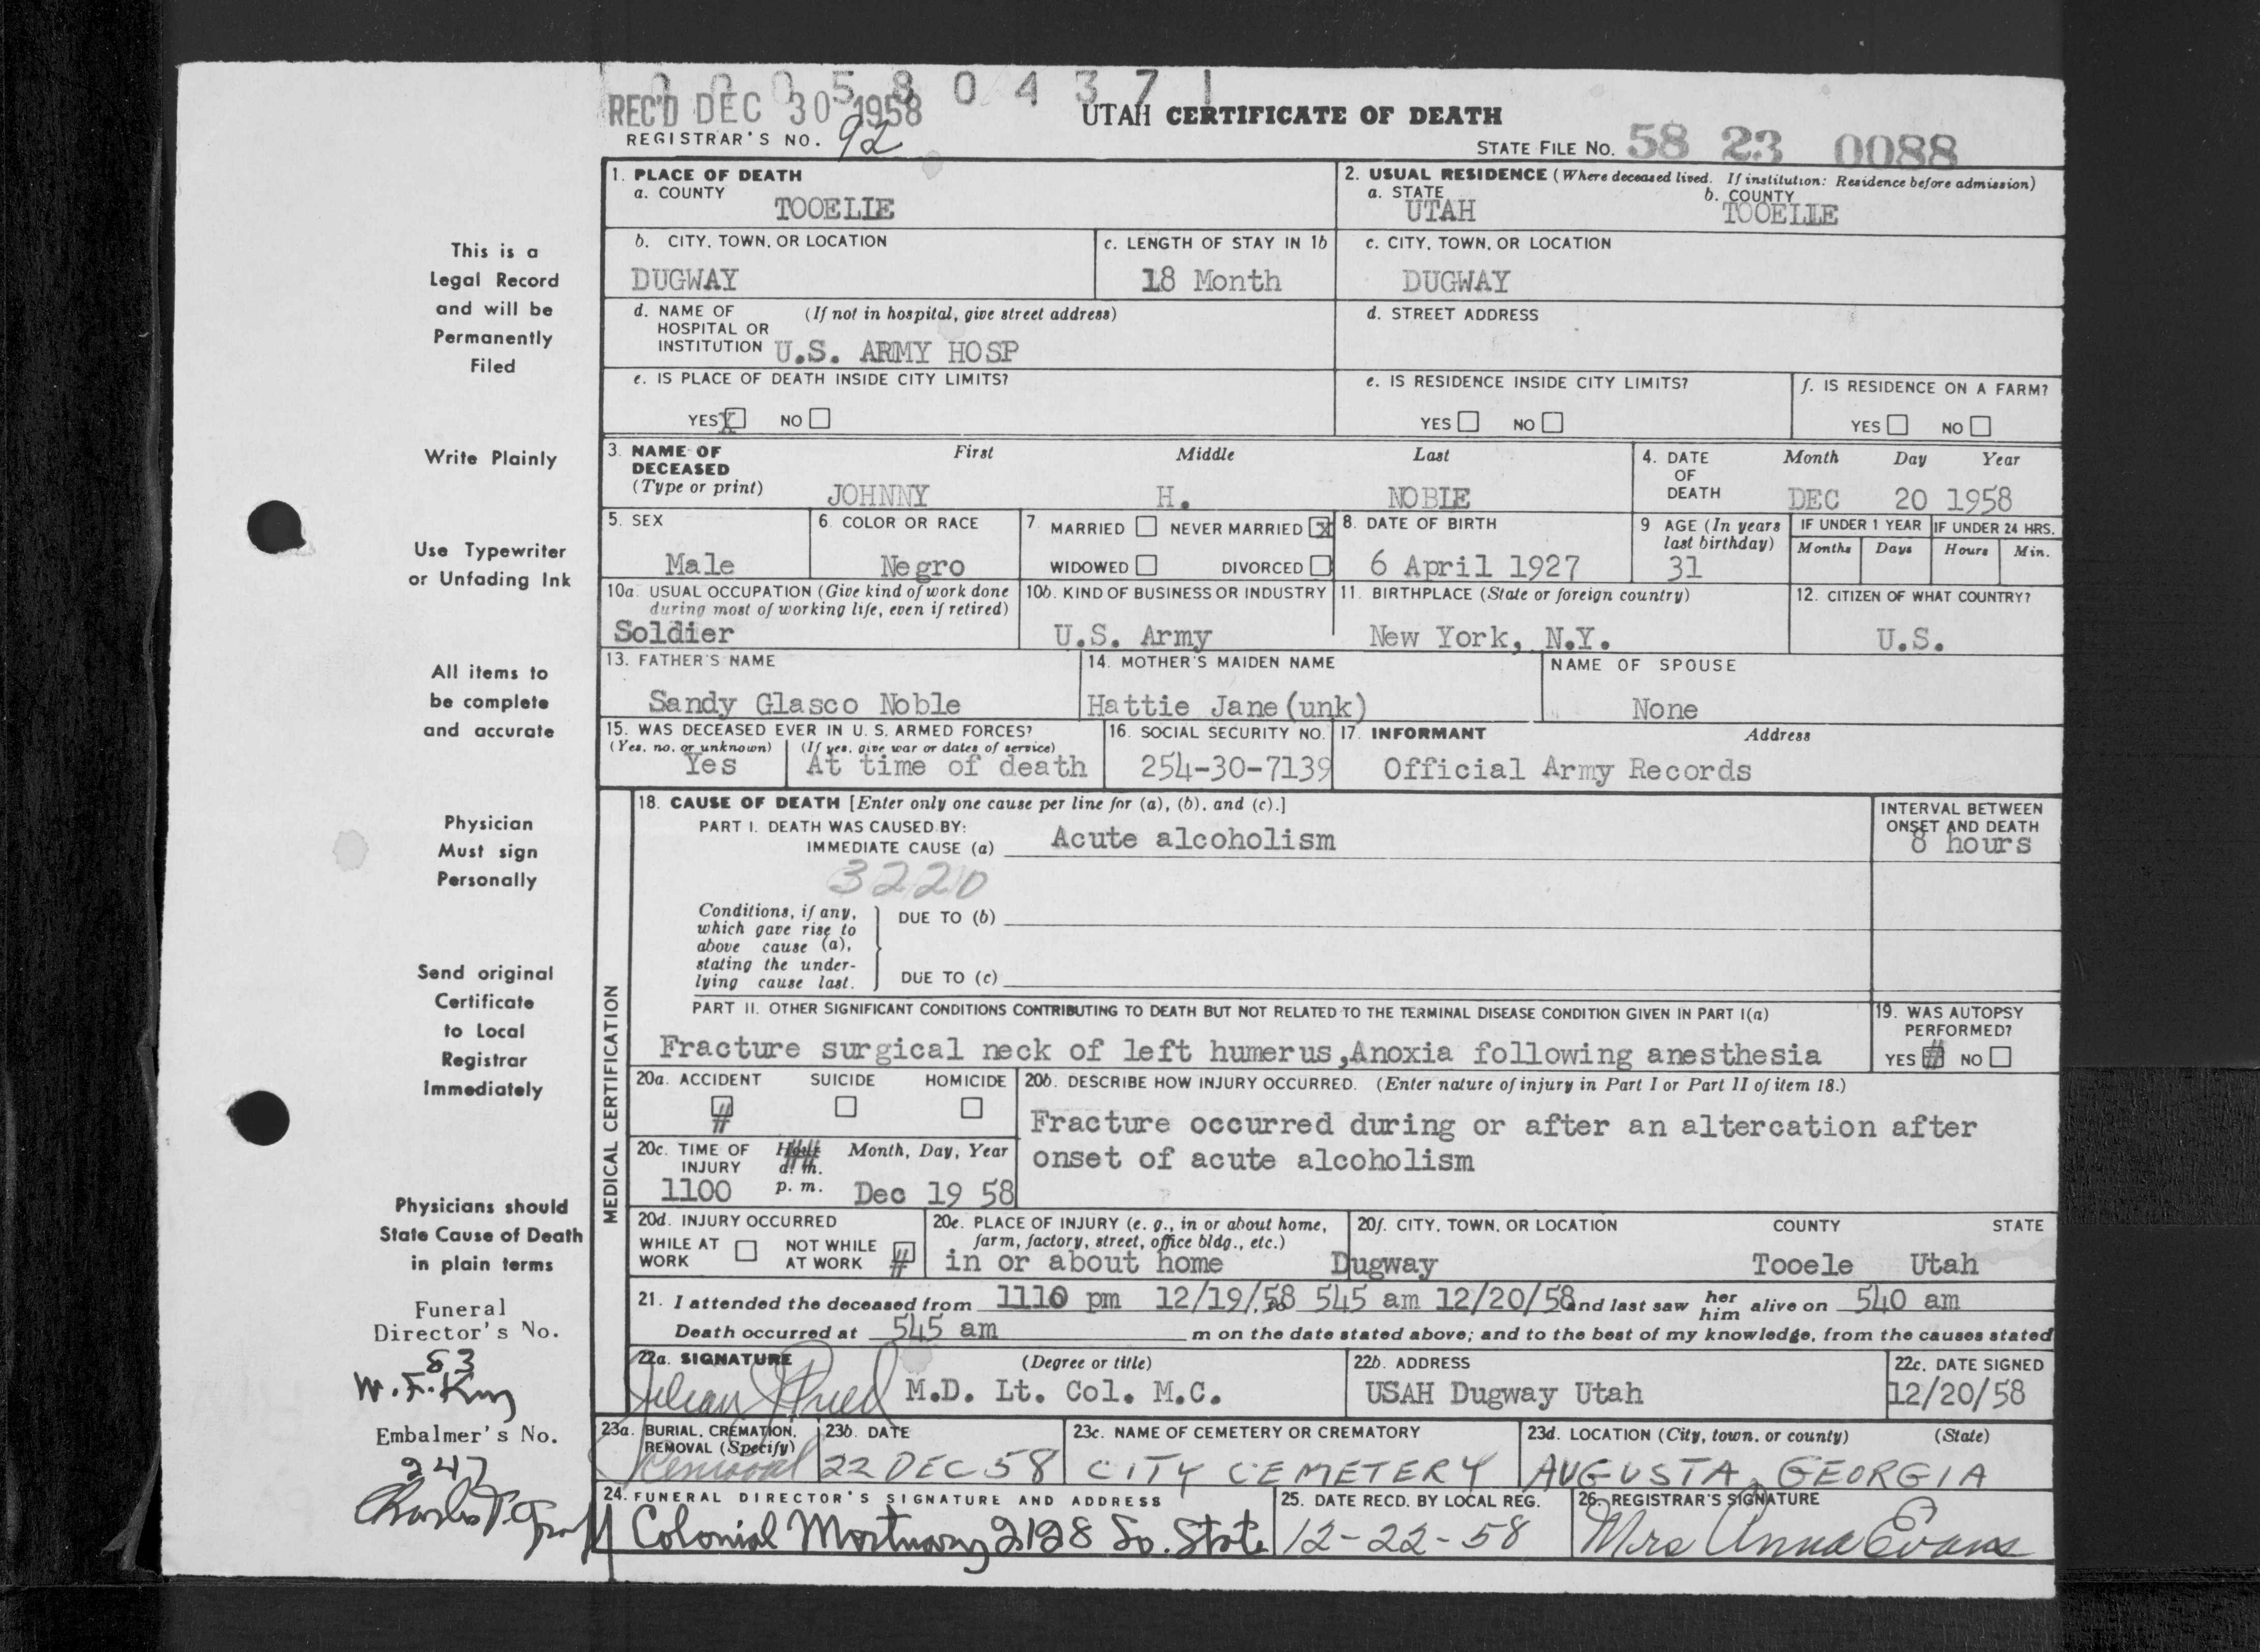 0 0 0 5 8 0 4 3 7 1
REC'D DEC 30 1958
UTAH CERTIFICATE OF DEATH
REGISTRAR'S NO. 92
STATE FILE NO. 58 23 0088
1. PLACE OF DEATH
a. COUNTY
TOOELIE
2. USUAL RESIDENCE (Where deceased lived. If institution: Residence before admission)
a. STATE b. COUNTY
UTAH TOOELIE
b. CITY, TOWN, OR LOCATION
DUGWAY
c. LENGTH OF STAY IN 1b
18 Month
c. CITY, TOWN, OR LOCATION
DUGWAY
d. NAME OF (If not in hospital, give street address)
HOSPITAL OR
INSTITUTION U.S. ARMY HOSP
d. STREET ADDRESS
e. IS PLACE OF DEATH INSIDE CITY LIMITS?
YES X NO
e. IS RESIDENCE INSIDE CITY LIMITS?
YES NO
f. IS RESIDENCE ON A FARM?
YES NO
3. NAME OF First Middle Last
DECEASED
(Type or print) JOHNNY H. NOBIE
4. DATE Month Day Year
OF
DEATH DEC 20 1958
5. SEX
Male
6. COLOR OR RACE
Negro
7. MARRIED NEVER MARRIED X
WIDOWED DIVORCED
8. DATE OF BIRTH
6 April 1927
9 AGE (In years
last birthday)
31
IF UNDER 1 YEAR IF UNDER 24 HRS.
Months Days Hours Min.
10a. USUAL OCCUPATION (Give kind of work done
during most of working life, even if retired)
Soldier
10b. KIND OF BUSINESS OR INDUSTRY
U.S. Army
11. BIRTHPLACE (State or foreign country)
New York, N.Y.
12. CITIZEN OF WHAT COUNTRY?
U.S.
13. FATHER'S NAME
Sandy Glasco Noble
14. MOTHER'S MAIDEN NAME
Hattie Jane(unk)
NAME OF SPOUSE
None
15. WAS DECEASED EVER IN U. S. ARMED FORCES?
(Yes, no, or unknown) (If yes, give war or dates of service)
Yes At time of death
16. SOCIAL SECURITY NO.
254-30-7139
17. INFORMANT Address
Official Army Records
MEDICAL CERTIFICATION
18. CAUSE OF DEATH [Enter only one cause per line for (a), (b), and (c).]
PART I. DEATH WAS CAUSED BY:
IMMEDIATE CAUSE (a) Acute alcoholism
3220
INTERVAL BETWEEN
ONSET AND DEATH
8 hours
Conditions, if any,
which gave rise to
above cause (a),
stating the under-
lying cause last.
DUE TO (b)
DUE TO (c)
PART II. OTHER SIGNIFICANT CONDITIONS CONTRIBUTING TO DEATH BUT NOT RELATED TO THE TERMINAL DISEASE CONDITION GIVEN IN PART I(a)
Fracture surgical neck of left humerus,Anoxia following anesthesia
19. WAS AUTOPSY
PERFORMED?
YES # NO
20a. ACCIDENT SUICIDE HOMICIDE
#
20b. DESCRIBE HOW INJURY OCCURRED. (Enter nature of injury in Part I or Part II of item 18.)
Fracture occurred during or after an altercation after
onset of acute alcoholism
20c. TIME OF Hour Month, Day, Year
INJURY a. m.
1100 p. m. Dec 19 58
20d. INJURY OCCURRED
WHILE AT WORK NOT WHILE AT WORK #
20e. PLACE OF INJURY (e. g., in or about home,
farm, factory, street, office bldg., etc.)
in or about home
20f. CITY, TOWN, OR LOCATION COUNTY STATE
Dugway Tooele Utah
21. I attended the deceased from 1110 pm 12/19/58 to 545 am 12/20/58 and last saw her him alive on 540 am
Death occurred at 545 am m on the date stated above; and to the best of my knowledge, from the causes stated
22a. SIGNATURE (Degree or title)
M.D. Lt. Col. M.C.
22b. ADDRESS
USAH Dugway Utah
22c. DATE SIGNED
12/20/58
23a. BURIAL, CREMATION,
REMOVAL (Specify)
Removal
23b. DATE
22 DEC 58
23c. NAME OF CEMETERY OR CREMATORY
CITY CEMETERY
23d. LOCATION (City, town, or county) (State)
AUGUSTA, GEORGIA
24. FUNERAL DIRECTOR'S SIGNATURE AND ADDRESS
Colonial Mortuary 2128 So. State
25. DATE RECD. BY LOCAL REG.
12-22-58
26. REGISTRAR'S SIGNATURE
Mrs Anna Evans
This is a
Legal Record
and will be
Permanently
Filed
Write Plainly
Use Typewriter
or Unfading Ink
All items to
be complete
and accurate
Physician
Must sign
Personally
Send original
Certificate
to Local
Registrar
Immediately
Physicians should
State Cause of Death
in plain terms
Funeral
Director's No.
83
W. F. King
Embalmer's No.
247
Charles T.